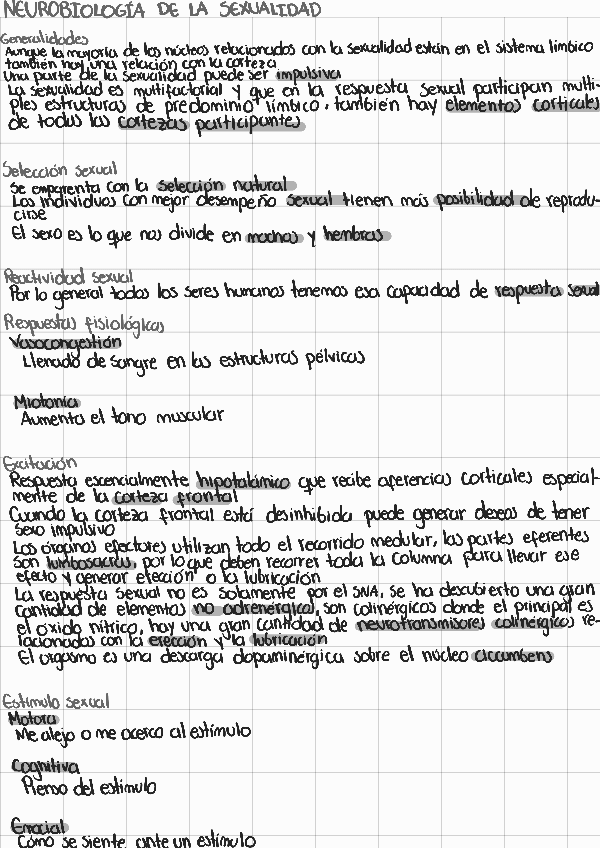 NEUROBIOLOGÍA DE LA SEXUALIDAD
Generalidades
Aunque la mayoría de los núcleos relacionados con la sexualidad están en el sistema límbico
también hay una relación con la corteza
Una parte de la sexualidad puede ser impulsiva
La sexualidad es multifactorial y que en la respuesta sexual participan multi-
ples estructuras de predominio límbico, también hay elementos corticales
de todas las cortezas participantes
Selección sexual
Se emparenta con la selección natural
Los individuos con mejor desempeño sexual tienen más posibilidad de reprodu-
cirse
El sexo es lo que nos divide en machos y hembras
Reactividad sexual
Por lo general todos los seres humanos tenemos esa capacidad de respuesta sexual
Respuestas fisiológicas
Vasocongestión
Llenado de sangre en las estructuras pélvicas
Miotonía
Aumenta el tono muscular
Excitación
Respuesta escencialmente hipotalámico que recibe aferencias corticales especial-
mente de la corteza frontal
Cuando la corteza frontal está desinhibida puede generar deseos de tener
sexo impulsivo
Los órganos efectores utilizan todo el recorrido medular, las partes eferentes
son lumbosacras, por lo que deben recorrer toda la columna para llevar ese
efecto y generar erección o la lubricación
La respuesta sexual no es solamente por el SNA, se ha descubierto una gran
cantidad de elementos no adrenérgical, son colinérgicos donde el principal es
el oxido nítrico, hay una gran cantidad de neurotransmisores colinérgicos re-
lacionados con la erección y la lubricación
El orgasmo es una descarga dopaminérgica sobre el núcleo accumbens
Estímulo sexual
Motora
Me alejo o me acerco al estímulo
Cognitiva
Pienso del estímulo
Emocial
Cómo se siente ante un estímulo